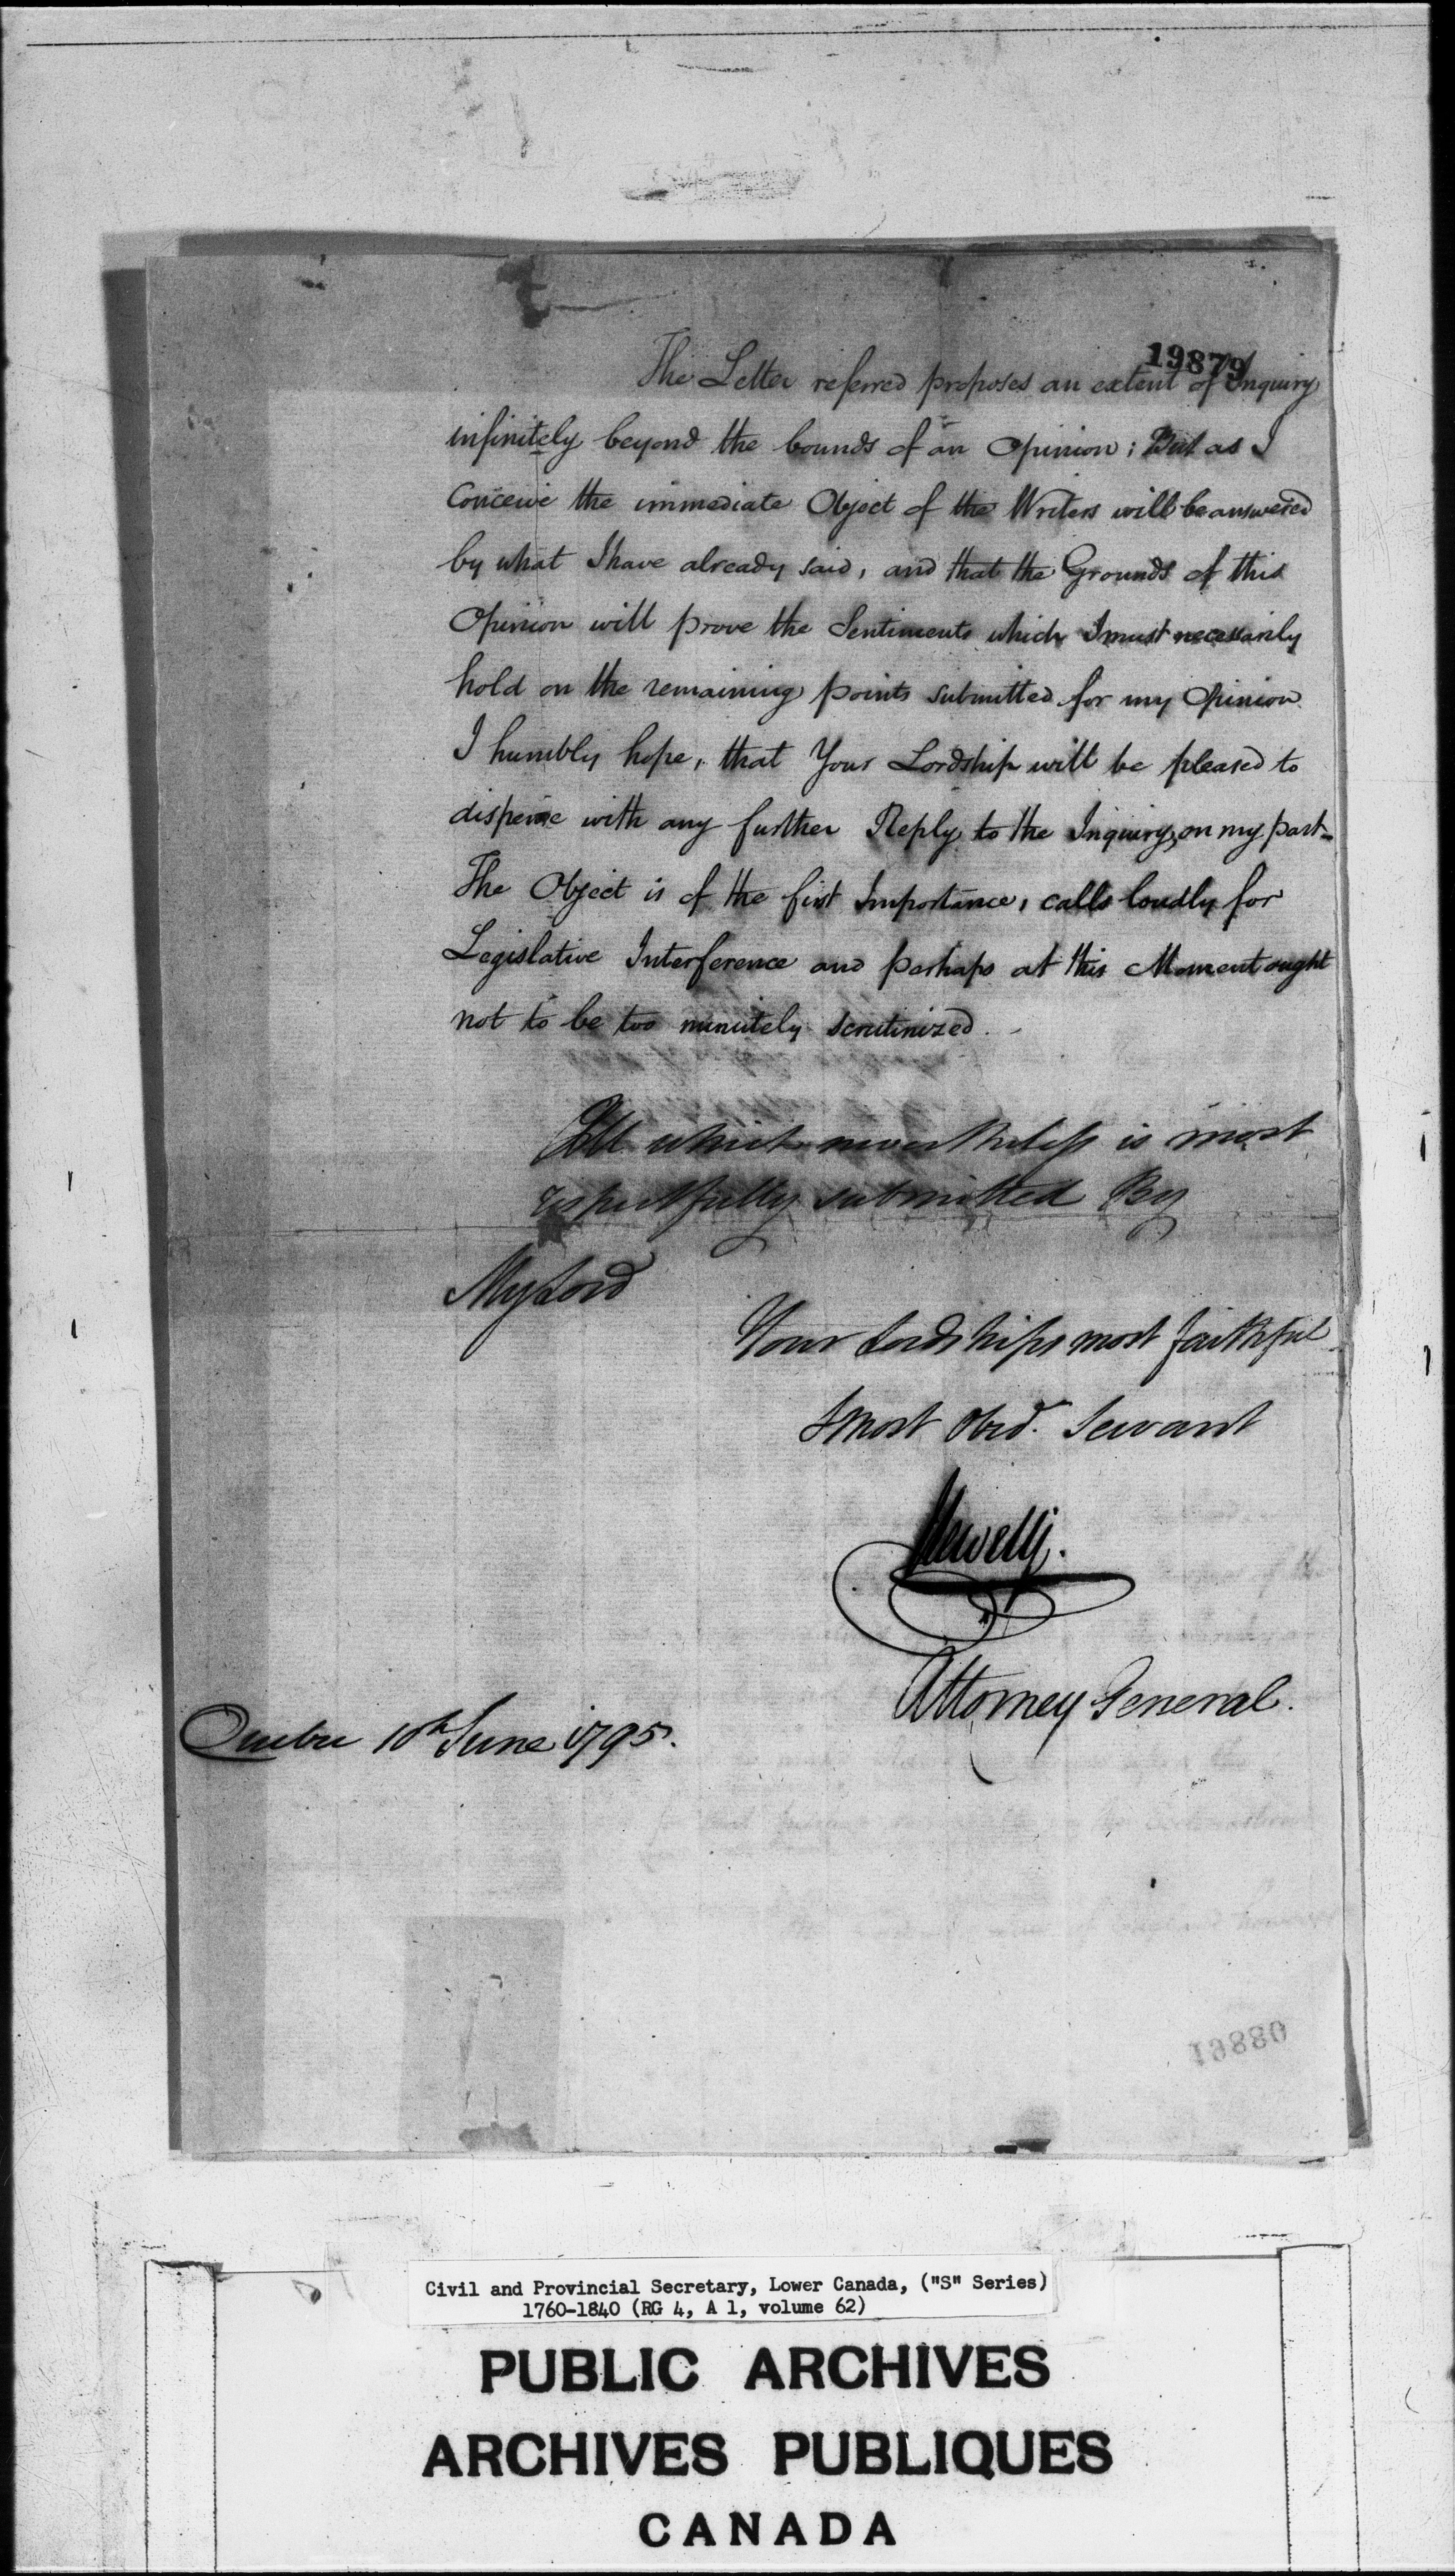 19879
The Letter referred proposes an extent of Inquiry
infinitely beyond the bounds of an Opinion; But as I
Conceive the immediate Object of the Writers will be answered
by what I have already said, and that the Grounds of this
Opinion will prove the Sentiments which I must necessarily
hold on the remaining points submitted for my Opinion
I humbly hope, that Your Lordship will be pleased to
dispense with any further Reply to the Inquiry, on my part-
The Object is of the first Importance, calls loudly for
Legislative Interference and perhaps at this Moment ought
not to be too minutely scrutinized.
All which nevertheless is most
respectfully submitted By
My Lord
Your Lordships most faithful
& most Obed. Servant
Sewell
Attorney General.
Quebec 10th June 1795.
19880
Civil and Provincial Secretary, Lower Canada, ("S" Series)
1760-1840 (RG 4, A 1, volume 62)
PUBLIC ARCHIVES
ARCHIVES PUBLIQUES
CANADA